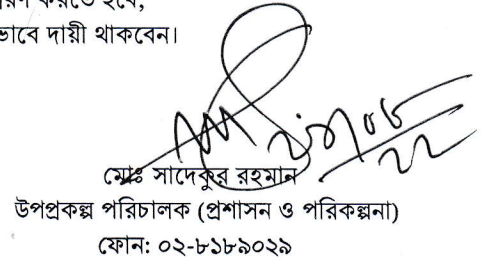 করতে হবে,
ভাবে দায়ী থাকবেন।
মোঃ সাদেকুর রহমান
উপপ্রকল্প পরিচালক (প্রশাসন ও পরিকল্পনা)
ফোন: ০২-৮১৮৯০২৯